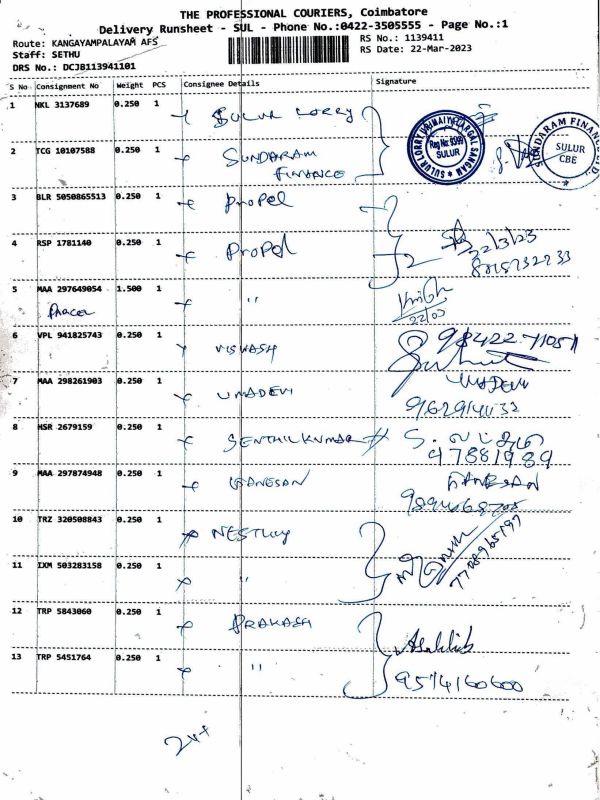 THE PROFESSIONAL COURIERS, Coimbatore
Delivery Runsheet - SUL - Phone No.:0422-3505555 - Page No.:1
Route: KANGAYAMPALAYAM AFS
Staff: SETHU
DRS No.: DCJB113941101
RS No.: 1139411
RS Date: 22-Mar-2023
S No Consignment No Weight PCS Consignee Details Signature
1 NKL 3137689 0.250 1 SULUR LORRY
SULUR LORRY URIMAIYALARGAL SANGAM
Reg No: 8399
SULUR
2 TCG 10107588 0.250 1 SUNDARAM FINANCE
SUNDARAM FINANCE LTD
SULUR
CBE
3 BLR 5050865513 0.250 1 Propel
4 RSP 1781140 0.250 1 Propel
22/3/23
5 MAA 297649054 1.500 1 "
22/03
6 VPL 941825743 0.250 1 VISWASH
98422 71051
7 MAA 298261903 0.250 1 UMADEVI
UMADEVI
8 HSR 2679159 0.250 1 SENTHILKUMAR
47881989
9 MAA 297874948 0.250 1 GANESAN
10 TRZ 320508843 0.250 1
11 IXM 503283158 0.250 1 "
7708965797
12 TRP 5843060 0.250 1 PRAKASH
13 TRP 5451764 0.250 1 "
9514160600